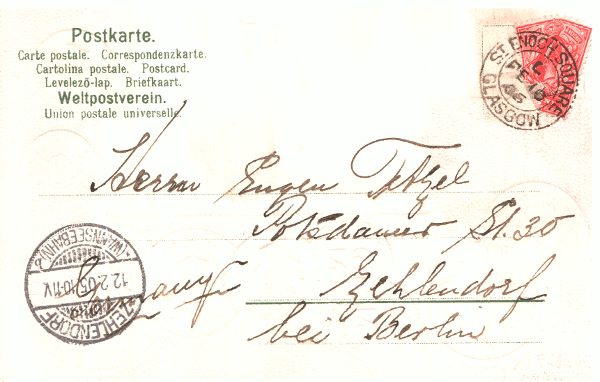 Postkarte.
Carte postale. Correspondenzkarte.
Cartolina postale. Postcard.
Levelező-lap. Briefkaart.
Weltpostverein.
Union postale universelle.
ST. ENOCH SQUARE
L
FE 10
05
GLASGOW
Herrn Eugen Tetzel
Potsdamer St. 30
Germany Zehlendorf
bei Berlin
(WANNSEEBAHN)
12.2.05.10-11V.
ZEHLENDORF